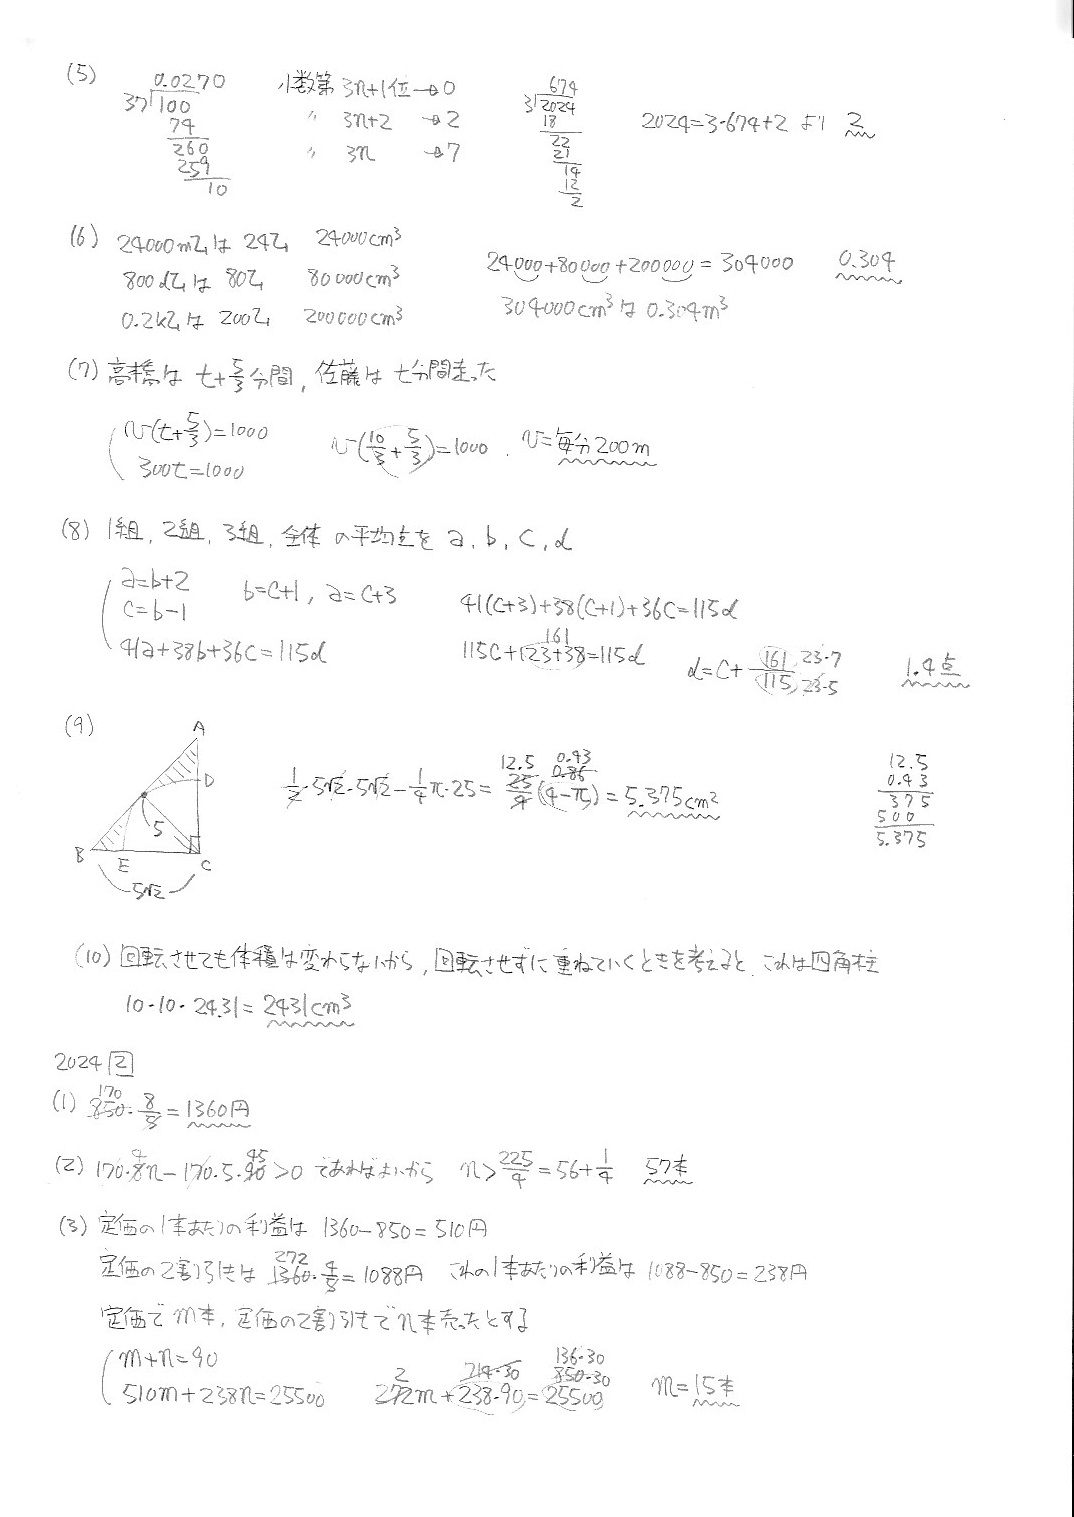 (5)
0.0270
37)100
74
260
259
10
小数第 3n+1位→0
〃 3n+2 →2
〃 3n →7
674
3)2024
18
22
21
14
12
2
2024=3·674+2 より 2
(6) 24000mLは 24L 24000cm³
800dLは 80L 80000cm³
0.2kLは 200L 200000cm³
24000+80000+200000=304000 0.304
304000cm³は0.304m³
(7) 高橋は t+5/3分間, 佐藤は t分間走った
v(t+5/3)=1000
300t=1000
v(10/3+5/3)=1000. v=毎分200m
(8) 1組, 2組, 3組, 全体 の平均点を a, b, c, d
a=b+2
c=b-1
41a+38b+36c=115d
b=c+1, a=c+3
41(c+3)+38(c+1)+36c=115d
161
115c+123+38=115d
d=c+161/115 23·7 23·5
1.4点
(9)
A
D
5
B
E
C
5√2
1/2·5√2·5√2-1/4π·25=25/4(4-π)=5.375cm²
12.5 0.43
0.86
12.5
0.43
375
500
5.375
(10) 回転させても体積は変わらないから, 回転させずに重ねていくときを考えると, これは四角柱
10·10·24.31=2431cm³
2024 2
(1) 850·8/5=1360円
170
(2) 170·8n-170·5·90>0 であればよいから n>225/4=56+1/4 57本
4 45
(3) 定価の1本あたりの利益は 1360-850=510円
定価の2割引きは 1360·4/5=1088円 これの1本あたりの利益は 1088-850=238円
272
定価でm本, 定価の2割引きでn本売ったとする
m+n=90
510m+238n=25500
272m+238·90=25500
2
714·30
136·30
850·30
m=15本